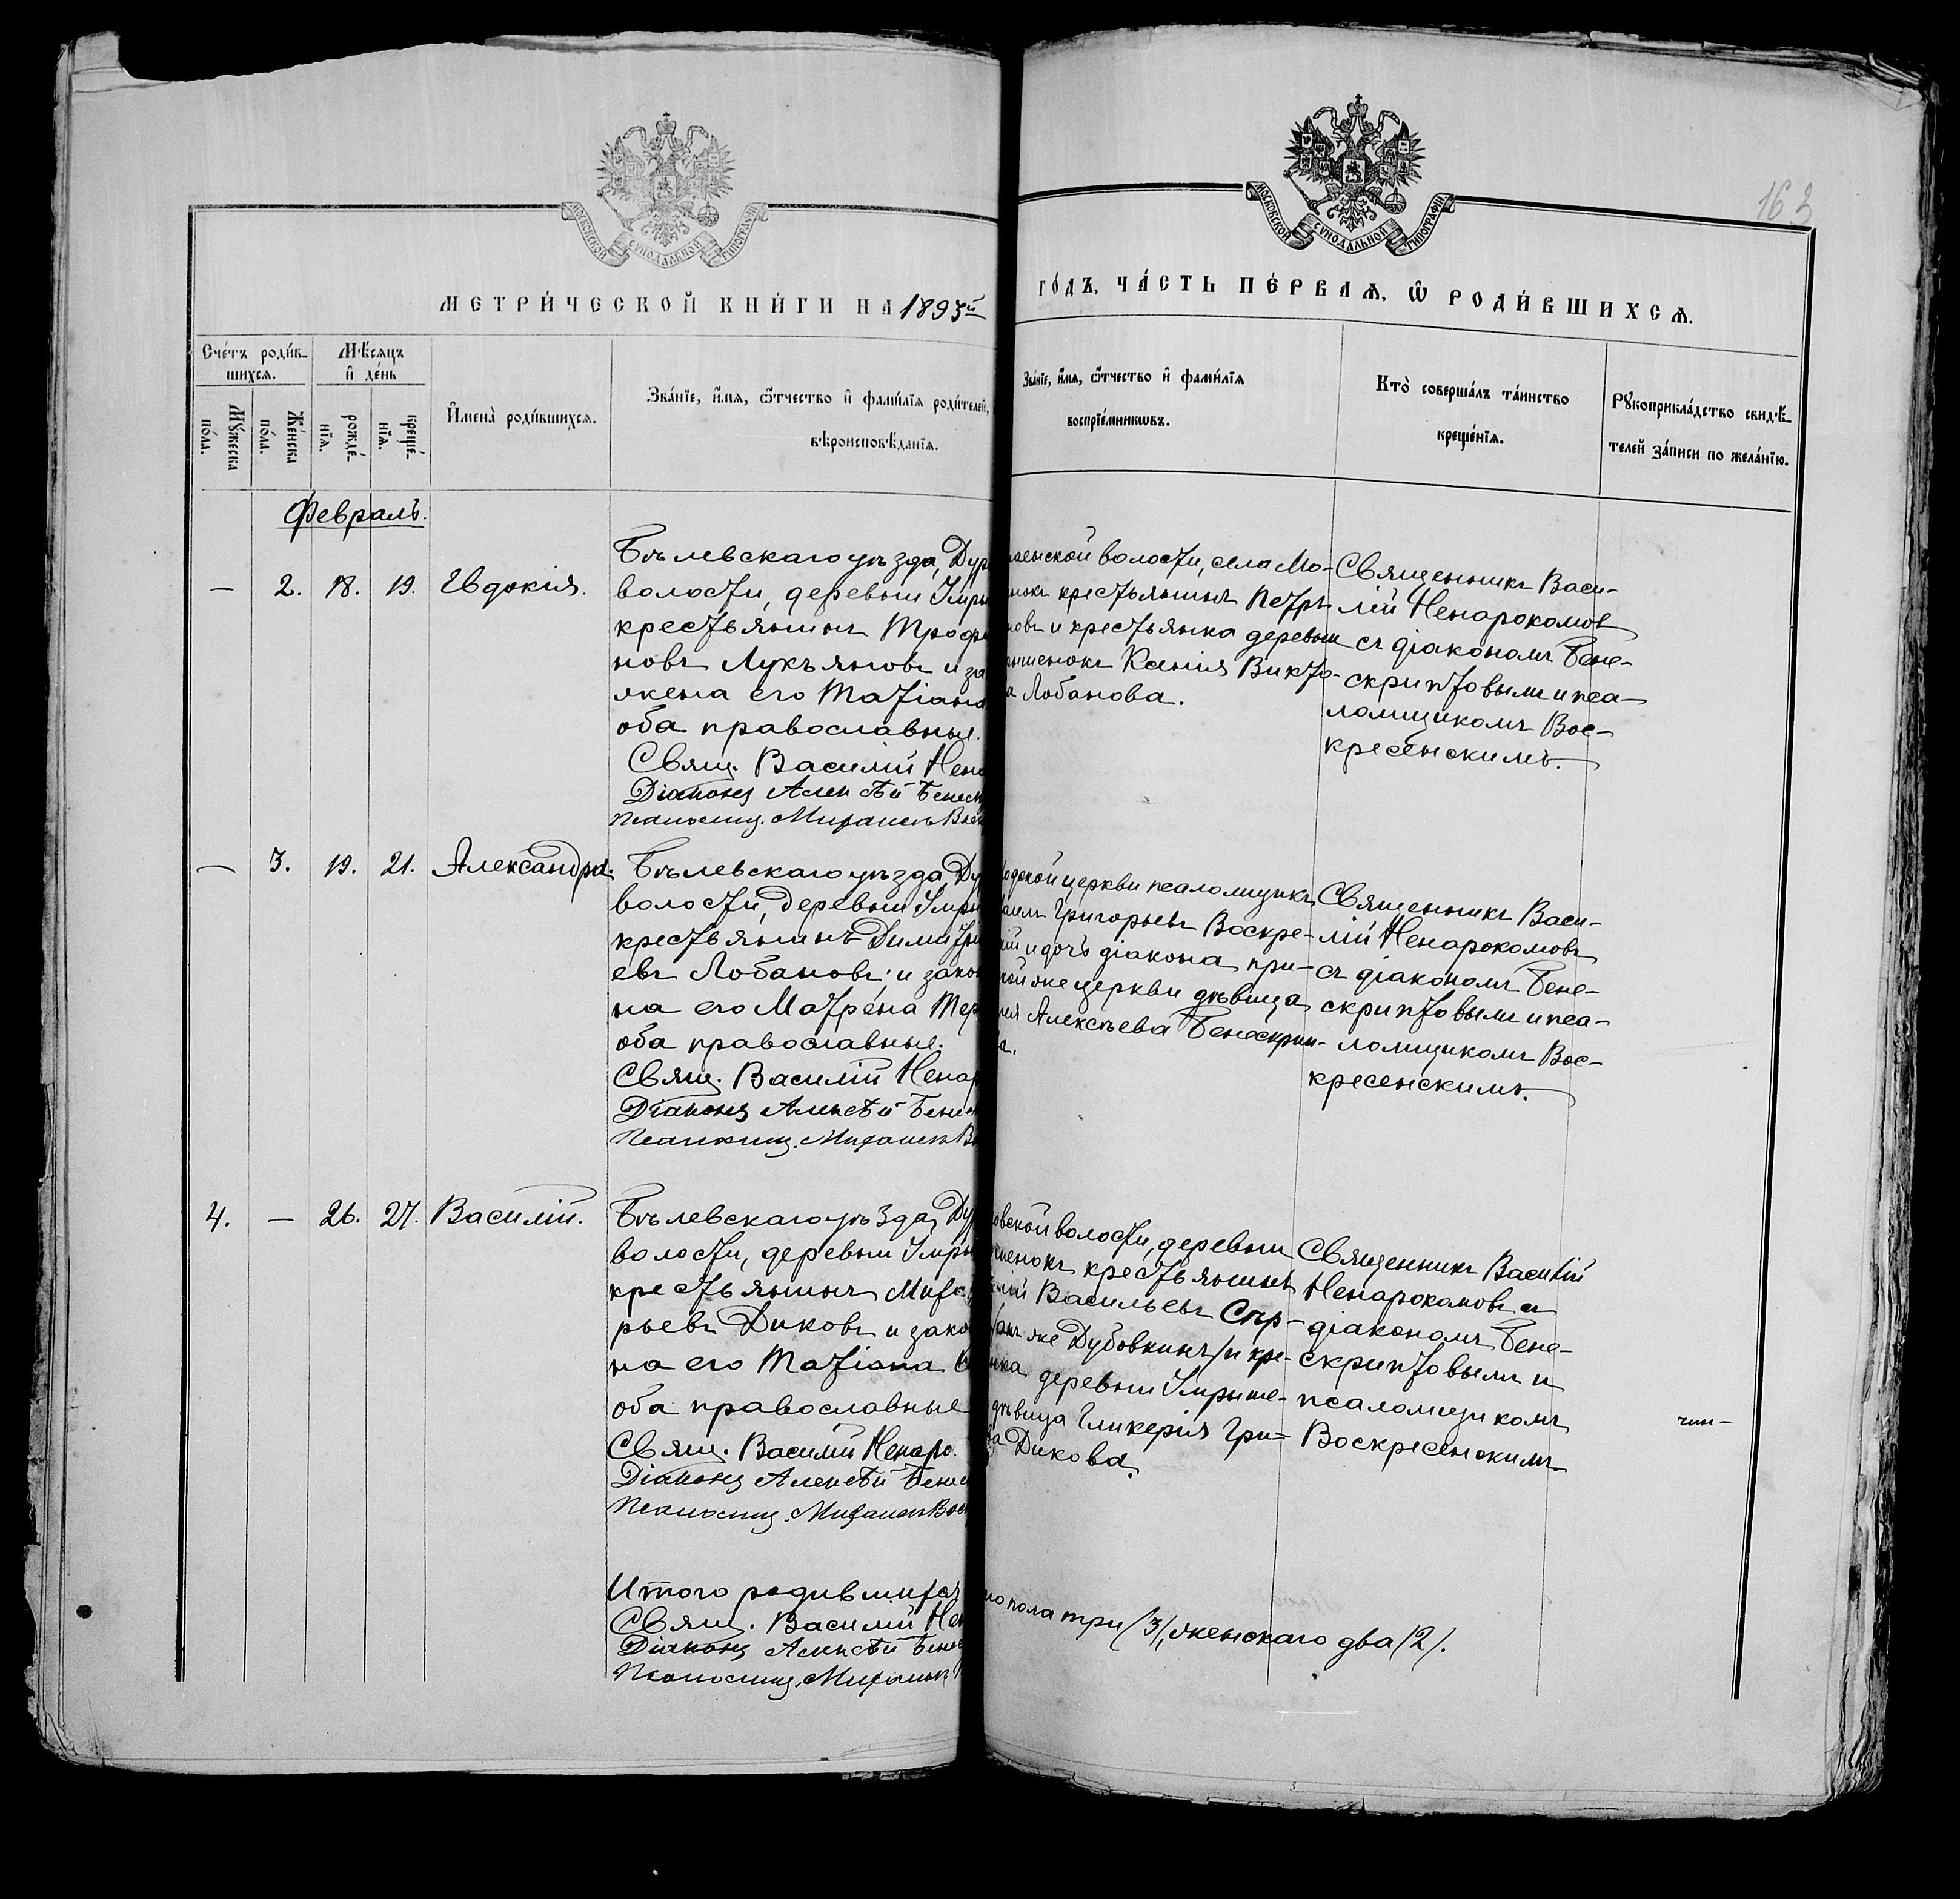 163
МОСКОВСКОЙ СУНОДАЛЬНОЙ ТИПОГРАФІИ
МОСКОВСКОЙ СУНОДАЛЬНОЙ ТИПОГРАФІИ
МЕТРИ́ЧЕСКОЙ КНИ́ГИ НА 1893й
ГО́ДЪ, ЧА́СТЬ ПЕ́РВАѦ, Ѽ РОДИ́ВШИХСѦ.
Сче́тъ роди́в-
шихсѧ.
Мꙋжеска
по́ла.
Же́нска
по́ла.
М́ѣсѧцъ
и҆ де́нь
рожде́-
нїѧ.
креще́-
нїѧ.
И҆мена̀ роди́вшихсѧ.
Зва́нїе, и҆́мѧ, ѻ҆́тчество и҆ фами́лїѧ роди́телей,
вѣроисповѣ́данїѧ.
Зва́нїе, и҆́мѧ, ѻ҆́тчество и҆ фами́лїѧ
воспрїе́мникѡвъ.
Кто̀ соверша́лъ та́инство
креще́нїѧ.
Рꙋкоприкла́дство свидѣ́-
телей за́писи по жела́нїю.
Февраль.
— 2. 18. 19. Евдокія.
Бѣлевскаго уѣзда, Дур
волости, деревни Имры
крестьянинъ Трофи
новъ Лукъяновъ и за
жена его Татіана
оба православные.
Свящ. Василій Нена
Діаконъ Алексѣй Бенеск
Псаломщ. Михаилъ Воск
енской волости, села Мо-
нокъ крестьянинъ Петръ
новъ и крестьянка деревни
ышенокъ Ксенія Викто-
а Лобанова.
Священникъ Васи-
лій Ненарокомов
съ діакономъ Бене-
скриптовымъ и пса-
ломщикомъ Вос-
кресенскимъ.
— 3. 19. 21. Александра.
Бѣлевскаго уѣзда, Ду
волости, деревни Имры
крестьянинъ Димитрі
евъ Лобановъ; и закон
на его Матрена Тер
оба православные.
Свящ. Василій Ненар
Діаконъ Алексѣй Бенес
Псаломщ. Михаилъ В
ходской церкви псаломщикъ
аилъ Григорьевъ Воскре-
ій и дочь діакона при-
кой же церкви дѣвица
ія Алексѣева Бенескрип-
а.
Священникъ Васи-
лій Ненарокомовъ
съ діакономъ Бене-
скриптовымъ и пса-
ломщикомъ Вос-
кресенскимъ.
4. — 26. 27. Василій.
Бѣлевскаго уѣзда, Ду
волости, деревни Имры
крестьянинъ Миха
рьевъ Диковъ и зако
на его Татіана
оба православные
Свящ. Василій Ненаро.
Діаконъ Алексѣй Бенес
Псаломщ. Михаилъ Вос
овской волости, деревни
шенокъ крестьянинъ
лій Васильевъ Сѣр-
онъ же Дубовкинъ/ и кре-
нка деревни Имрыше-
дѣвица Гликерія Гри-
ва Дикова.
Священникъ Василій
Ненарокомовъ съ
діакономъ Бене-
скриптовымъ и
псаломщикомъ
Воскресенскимъ.
Итого родившихся
Свящ. Василій Нен
Діаконъ Алексѣй Бенес
Псаломщ. Михаилъ
по пола три /3/, женскаго два /2/.